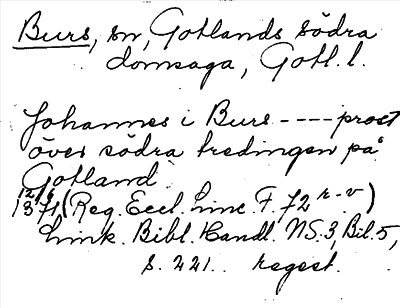 Burs, sn, Gotlands södra
domsaga, Gotl. l.
Johannes i Burs ---- prost
över södra tredingen på
Gotland.
12/6
1371 (Reg. Eccl. Linc. F. 72 r-v)
Link. Bibl. Handl. NS. 3, Bil. 5,
s. 221. regest.